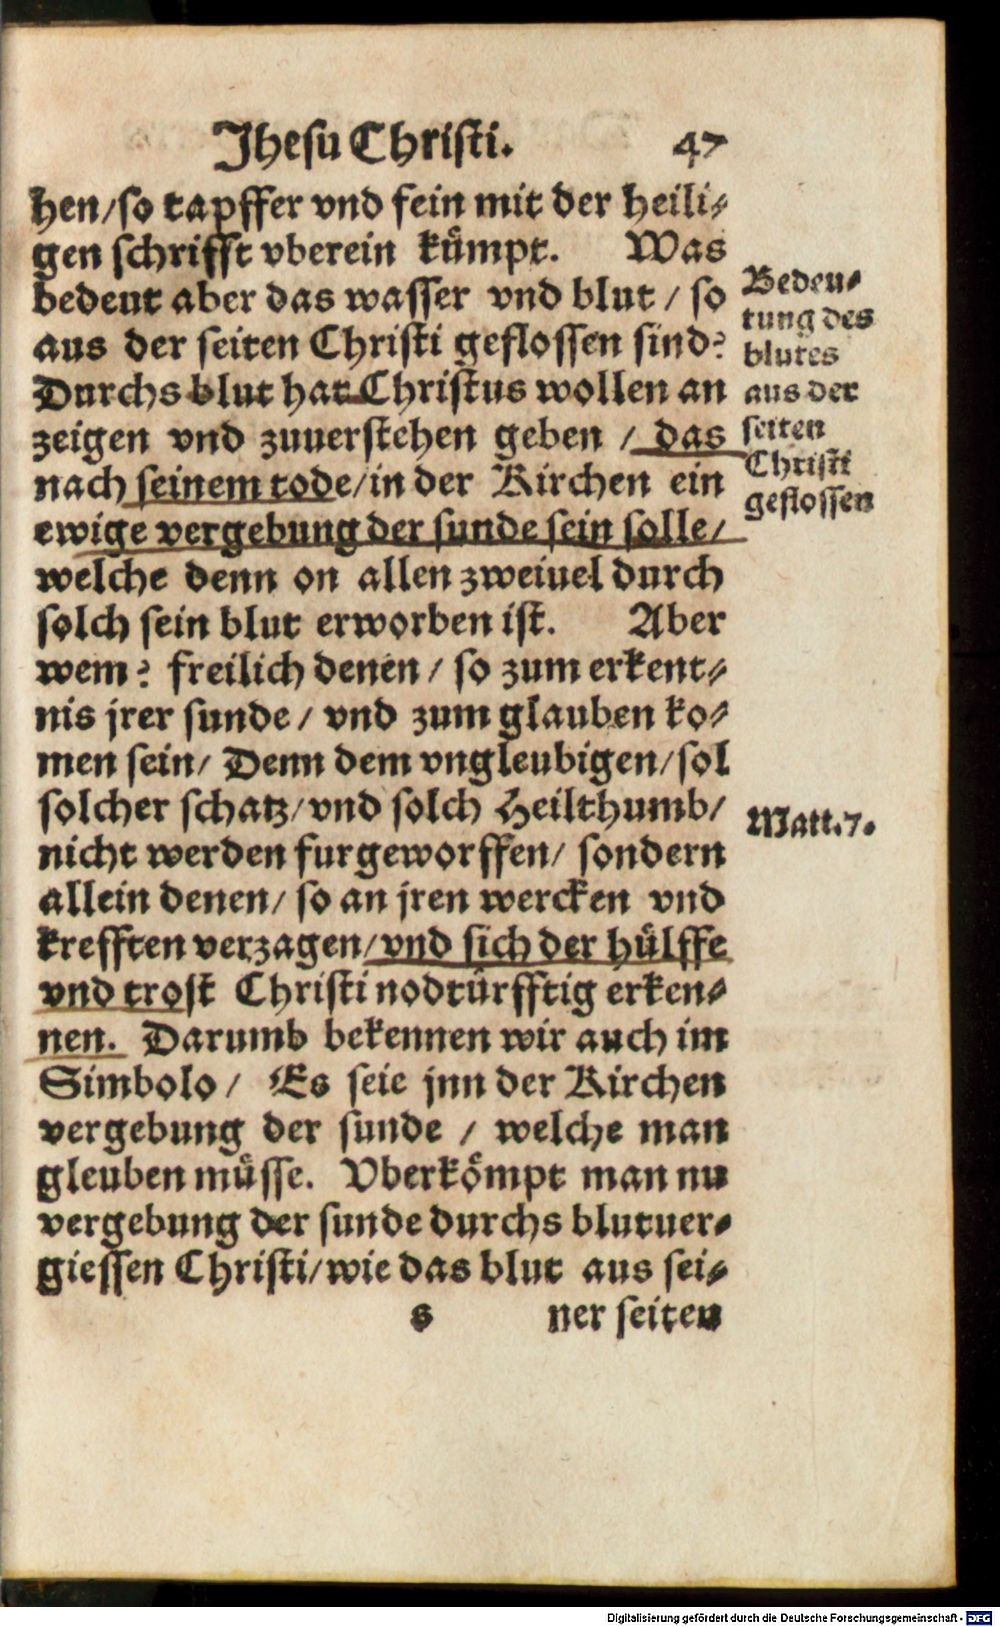 Jhesu Christi. 47
hen/so tapffer vnd fein mit der heili⸗
gen schrifft vberein kümpt. Was
bedeut aber das wasser vnd blut / so
aus der seiten Christi geflossen sind?
Durchs blut hat Christus wollen an
zeigen vnd zuuerstehen geben / das
nach seinem tode/in der Kirchen ein
ewige vergebung der sunde sein solle/
welche denn on allen zweiuel durch
solch sein blut erworben ist. Aber
wem? freilich denen / so zum erkent⸗
nis jrer sunde / vnd zum glauben ko⸗
men sein/ Denn dem vngleubigen/sol
solcher schatz/vnd solch Heilthumb/
nicht werden furgeworffen/ sondern
allein denen/ so an jren wercken vnd
krefften verzagen/vnd sich der hülffe
vnd trost Christi nodtürfftig erken⸗
nen. Darumb bekennen wir auch im
Simbolo / Es seie jnn der Kirchen
vergebung der sunde / welche man
gleuben müsse. Vberkömpt man nu
vergebung der sunde durchs blutuer⸗
giessen Christi/wie das blut aus sei⸗
s ner seiten
Bedeu⸗
tung des
blutes
aus der
seiten
Christi
geflossen
Matt.7.
Digitalisierung gefördert durch die Deutsche Forschungsgemeinschaft - DFG